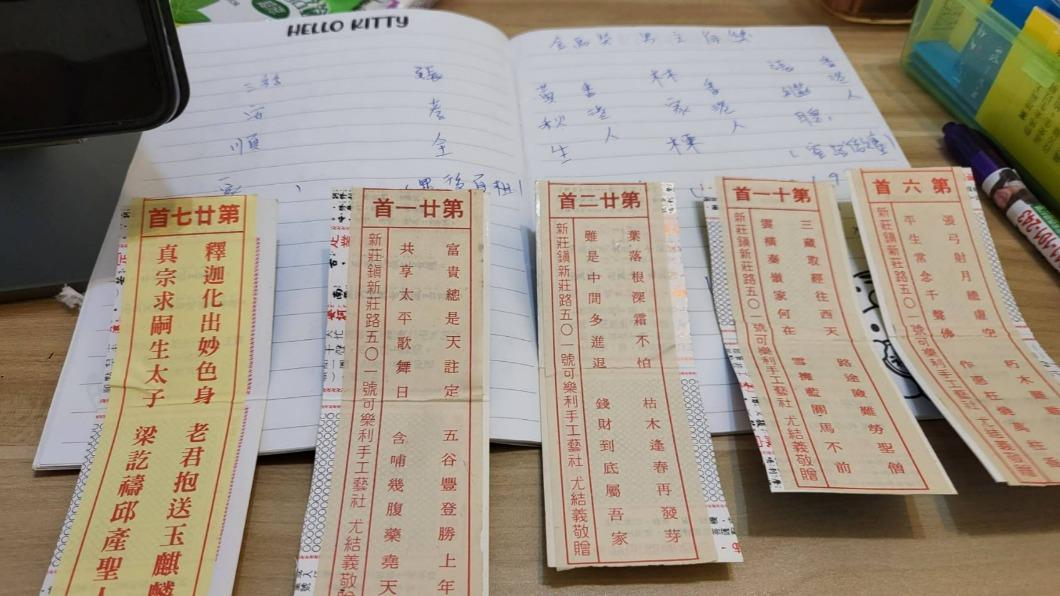 HELLO KITTY
張
老
全
三
安
順
金馬獎 男主角獎
黃秋生
香港人
林家棟
香港人
張繼聰
香港人
首七廿第
釋迦化出妙色身
老君抱送玉麒麟
真宗求嗣生太子
梁訖禱邱產聖
首一廿第
富貴總是天註定
五谷豐登勝上年
共享太平歌舞日
含哺幾腹藥堯天
新莊鎭新莊路五〇一號可樂利手工藝社 尤結義敬
首二廿第
葉落根深霜不怕
枯木逢春再發芽
雖是中間多進退
錢財到底屬吾家
新莊鎭新莊路五〇一號可樂利手工藝社 尤結義敬贈
首一十第
三藏取經往西天
路途險難勞聖僧
雲橫秦嶺家何在
雪擁藍關馬不前
新莊鎭新莊路五〇一號可樂利手工藝社 尤結義敬贈
首六第
漫弓射月體虛空
朽木
平生常念千聲佛
作惡
新莊鎭新莊路五〇一號可樂利手工藝社 尤結義敬贈